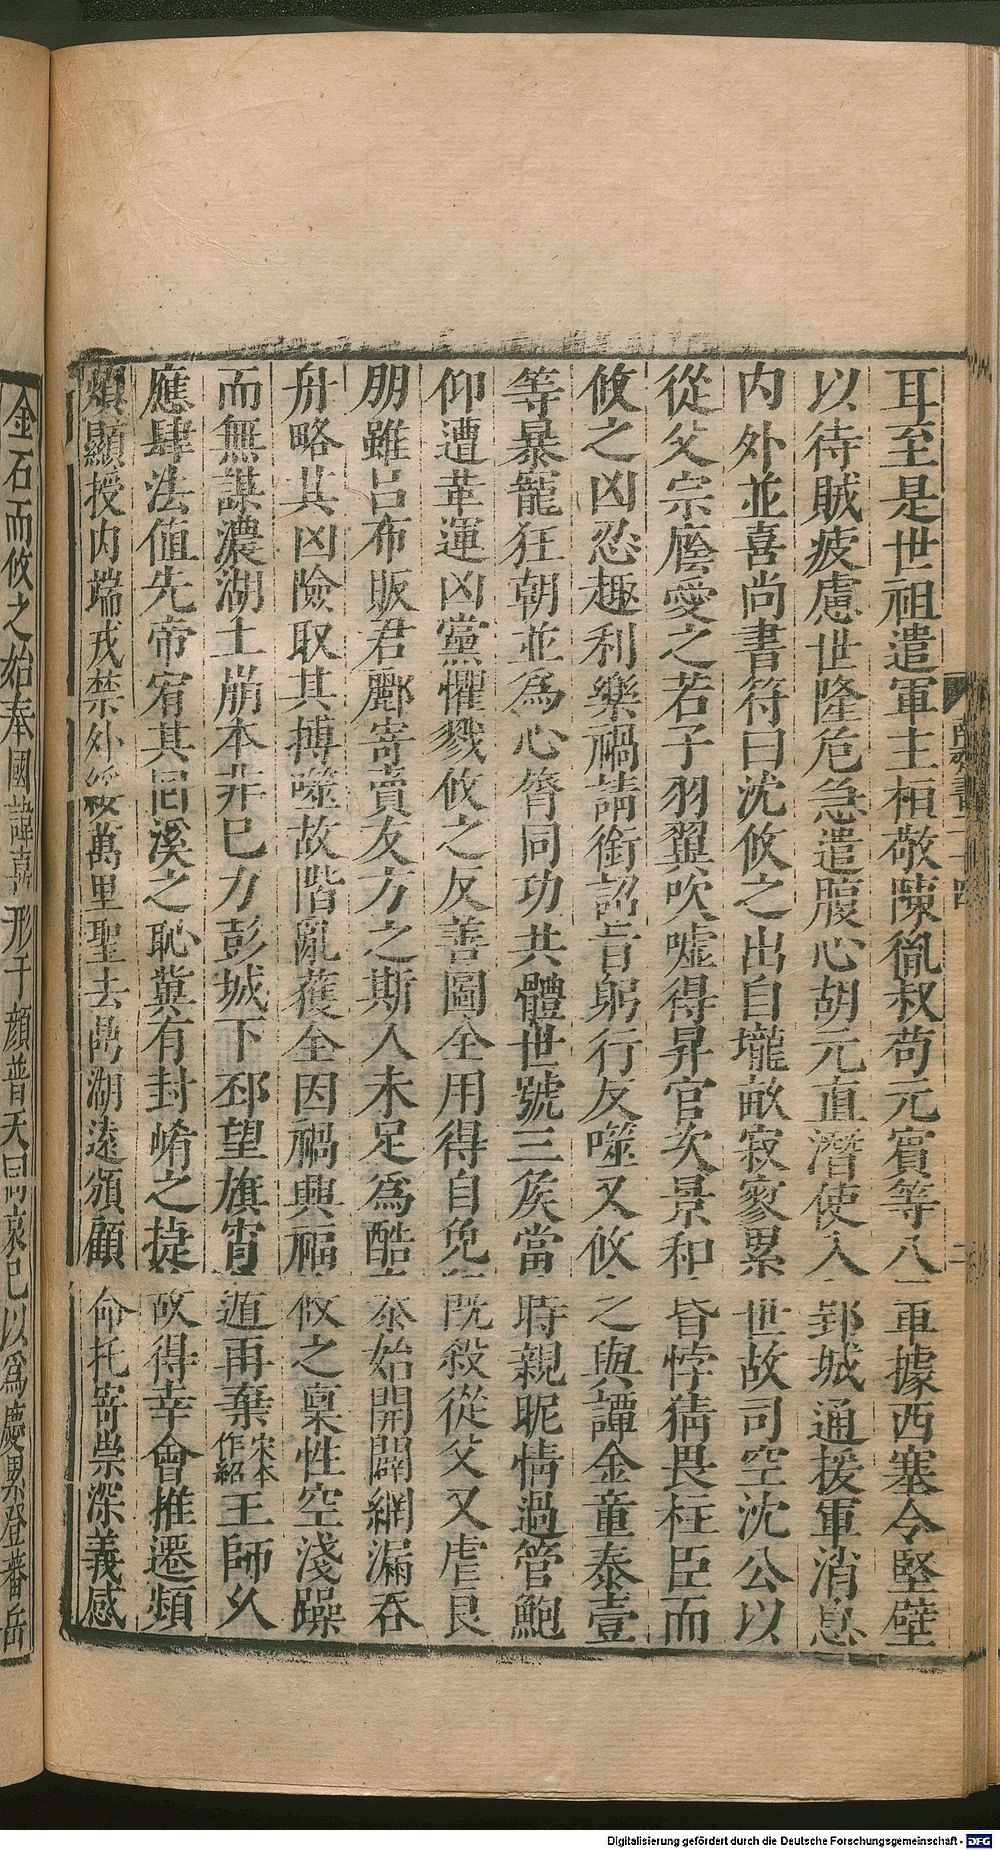 耳至是世祖遣軍主桓敬陳胤叔苟元賓等八軍據西塞令堅壁
以待賊疲慮世隆危急遣腹心胡元直潛使入郢城通援軍消息
内外並喜尚書符曰沈攸之出自壠畝寂寥累世故司空沈公以
從父宗廕愛之若子羽翼吹嘘得昇官次景和昏悖猜畏柱臣而
攸之凶忍趣利樂禍請銜詔旨躬行反噬又攸之與譚金童泰壹
等暴寵狂朝並為心膂同功共體世號三侯當時親昵情過管鮑
仰遭革運凶黨懼戮攸之反善圖全用得自免既殺從父又虐良
朋雖呂布販君酈寄賣友方之斯人未足為酷泰始開闢網漏吞
舟略其凶險取其搏噬故階亂獲全因禍興福攸之稟性空淺躁
而無謀濃湖土崩本非巳力彭城下邳望旗宵遁再棄宋本作紹王師久
應肆法值先帝宥其回溪之恥冀有封崤之捷故得幸會推遷頻
煩顯授内端戎禁外綏萬里聖去鼎湖遠頒顧命托寄崇深義感
金石而攸之始奉國諱喜形于顔普天同哀巳以為慶累登蕃岳
南齊書二十四
二
Digitalisierung gefördert durch die Deutsche Forschungsgemeinschaft - DFG